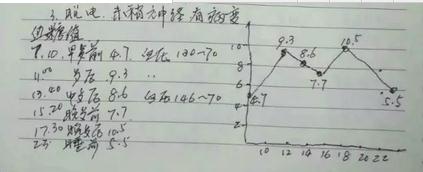 3. 肌电. 末梢神经有病变
血糖值
7.10. 早餐前 4.7. 血压 130~70
11.00 9.3 〃
13.40 8.6 血压 146~70
15.20 晚餐前 7.7
17.30 晚餐后 10.5
23 睡前 5.5
9.3
10.5
8.6
7.7
4.7
5.5
10
8
6
4
2
10 12 14 16 18 20 22